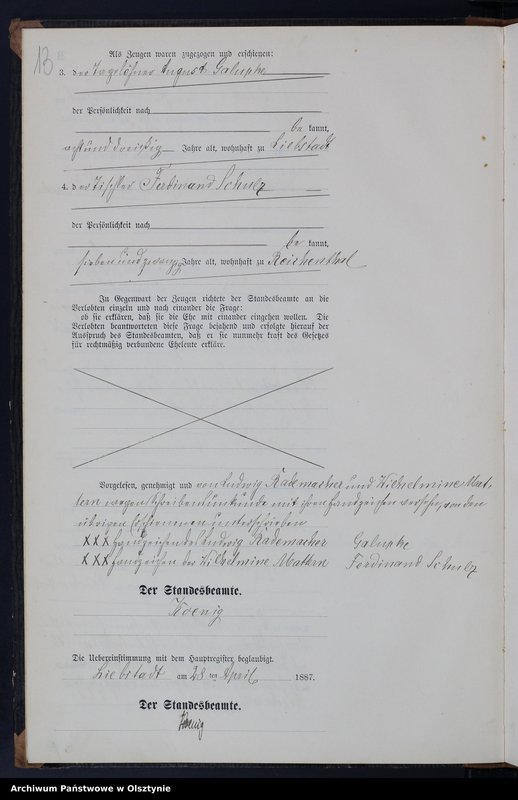 13
Als Zeugen waren zugezogen und erschienen:
3. der Tagelöhner August Galuphe
der Persönlichkeit nach
be kannt,
acht und dreißig Jahre alt, wohnhaft zu Liebstadt
4. der Tischler Ferdinand Schulz
der Persönlichkeit nach
be kannt,
sieben und zwanzig Jahre alt, wohnhaft zu Reichenthal
In Gegenwart der Zeugen richtete der Standesbeamte an die
Verlobten einzeln und nach einander die Frage:
ob sie erklären, daß sie die Ehe mit einander eingehen wollen. Die
Verlobten beantworteten diese Frage bejahend und erfolgte hierauf der
Ausspruch des Standesbeamten, daß er sie nunmehr kraft des Gesetzes
für rechtmäßig verbundene Eheleute erkläre.
Vorgelesen, genehmigt und von Ludwig Rademacher und Wilhelmine Mat-
tern wegen Schreibensunkunde mit ihren Handzeichen versehen, von den
übrigen Erschienenen unterschrieben
XXX Handzeichen des Ludwig Rademacher Galuphe
XXX Handzeichen der Wilhelmine Mattern Ferdinand Schulz
Der Standesbeamte.
Koenig
Die Uebereinstimmung mit dem Hauptregister beglaubigt.
Liebstadt am 28 ten April 1887.
Der Standesbeamte.
Koenig
Archiwum Państwowe w Olsztynie